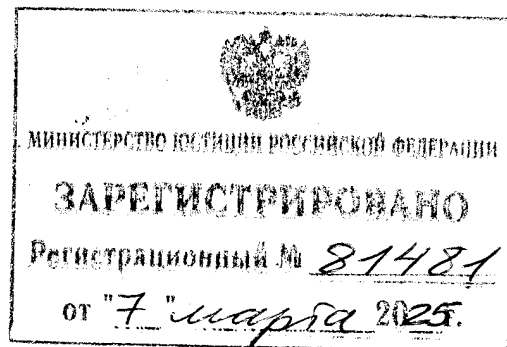 МИНИСТЕРСТВО ЮСТИЦИИ РОССИЙСКОЙ ФЕДЕРАЦИИ
ЗАРЕГИСТРИРОВАНО
Регистрационный № 81481
от "7" марта 2025г.